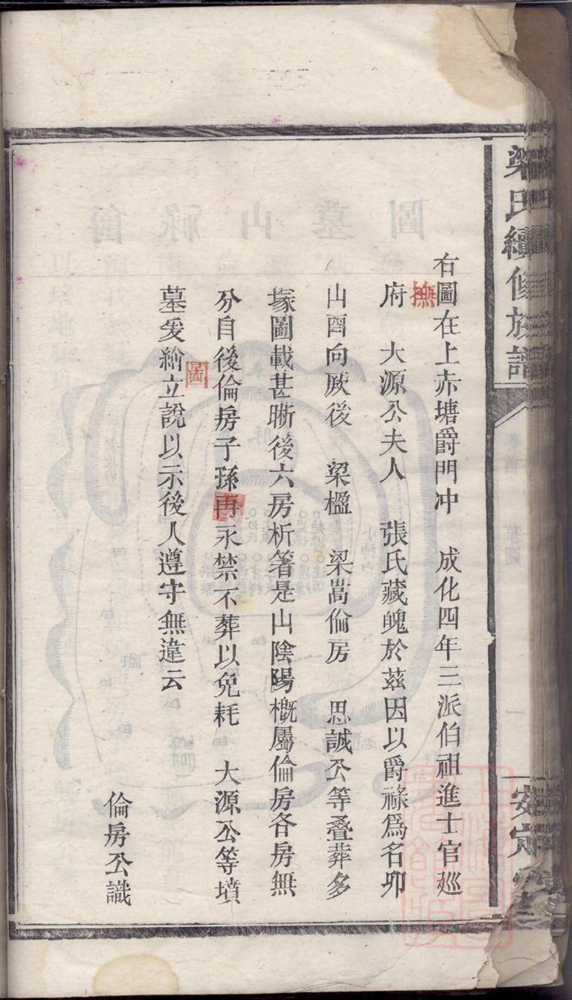 梁氏續修族譜
安定堂
右圖在上赤塘爵門冲　成化四年三派伯祖進士官巡
撫
府　大源公夫人　張氏藏魄於茲因以爵祿爲名卯
山酉向厥後　梁楹　梁嵩倫房　思誠公等叠葬多
塚圖載甚晰後六房析箸是山陰陽概屬倫房各房無
分自後倫房子孫再永禁不葬以免耗　大源公等墳
圖
墓爰繪立說以示後人遵守無違云
倫房公識
圖山墓祿爵